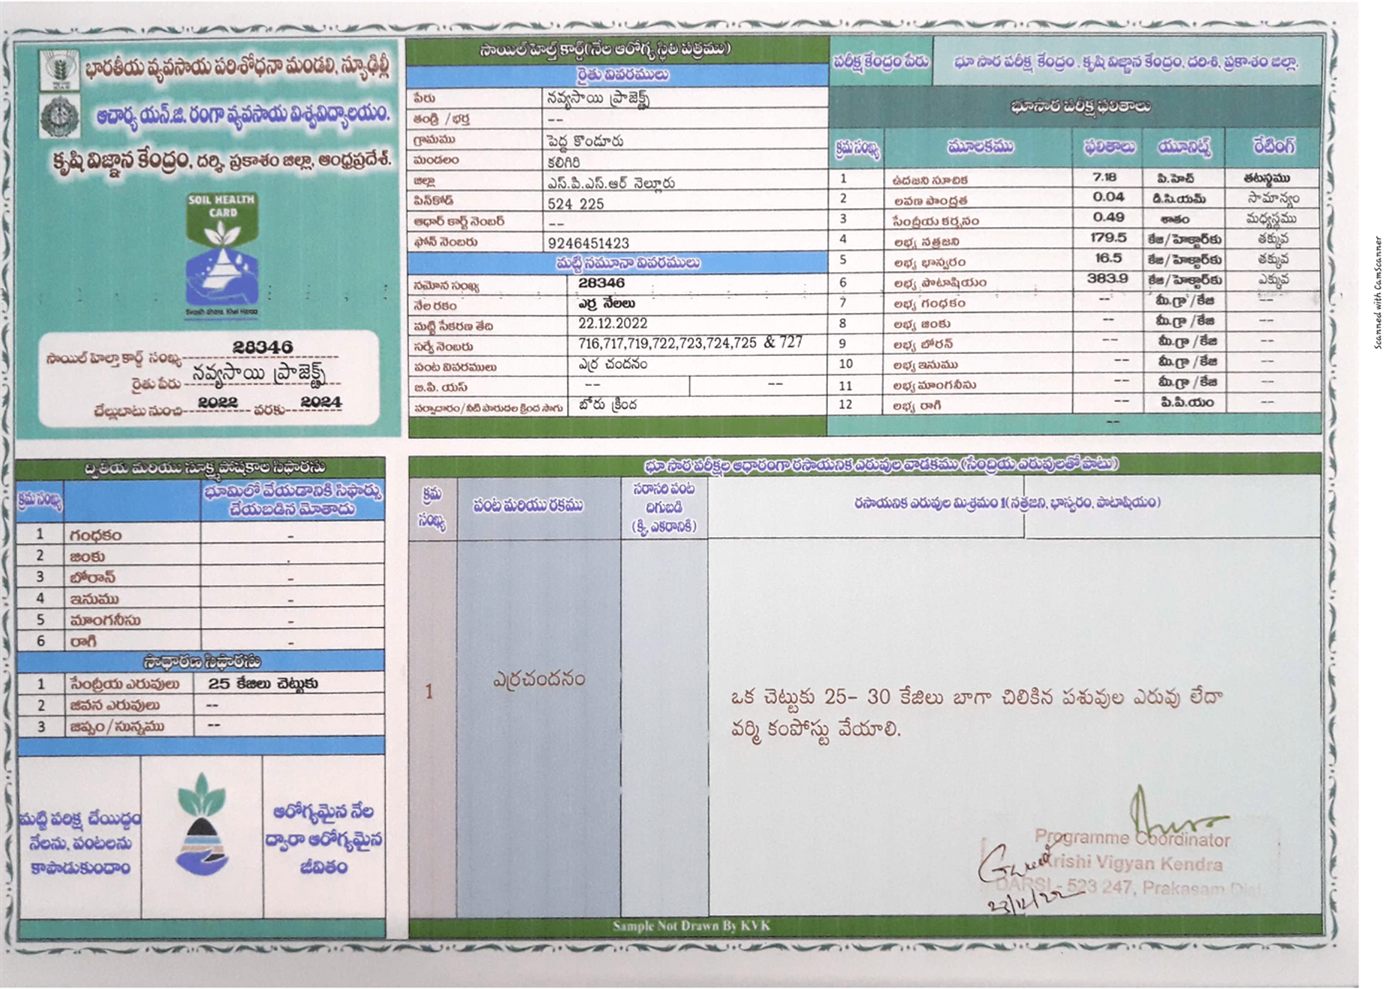 భారతీయ వ్యవసాయ పరిశోధనా మండలి, న్యూఢిల్లీ
ఆచార్య యన్.జి. రంగా వ్యవసాయ విశ్వవిద్యాలయం.
కృషి విజ్ఞాన కేంద్రం, దర్శి, ప్రకాశం జిల్లా, ఆంధ్రప్రదేశ్.
SOIL HEALTH
CARD
Swasth Dhara, Khet Haraa
సాయిల్ హెల్తా కార్డ్ సంఖ్య 28346
రైతు పేరు నవ్యసాయి ప్రాజెక్ట్స్
చెల్లుబాటు నుంచి 2022 వరకు 2024
సాయిల్ హెల్త్ కార్డ్(నేల ఆరోగ్య స్థితి పత్రము)
రైతు వివరములు
పేరు నవ్యసాయి ప్రాజెక్ట్స్
తండ్రి /భర్త --
గ్రామము పెద్ద కొండూరు
మండలం కలిగిరి
జిల్లా ఎస్.పి.ఎస్.ఆర్ నెల్లూరు
పిన్‌కోడ్ 524 225
ఆధార్ కార్డ్ నెంబర్ --
ఫోన్ నెంబరు 9246451423
మట్టి నమూనా వివరములు
నమోన సంఖ్య 28346
నేల రకం ఎర్ర నేలలు
మట్టి సేకరణ తేది 22.12.2022
సర్వే నెంబరు 716,717,719,722,723,724,725 & 727
పంట వివరములు ఎర్ర చందనం
జి.పి. యస్ -- --
వర్షాదారం/నీటి పారుదల క్రింద సాగు బోరు క్రింద
పరీక్ష కేంద్రం పేరు భూ సార పరీక్ష కేంద్రం, కృషి విజ్ఞాన కేంద్రం, దరిశి, ప్రకాశం జిల్లా.
భూసార పరీక్ష ఫలితాలు
క్రమ సంఖ్య మూలకము ఫలితాలు యూనిట్స్ రేటింగ్
1 ఉదజని సూచిక 7.18 పి.హెచ్ తటస్థము
2 లవణ సాంద్రత 0.04 డి.సి.యమ్ సామాన్యం
3 సేంద్రీయ కర్బనం 0.49 శాతం మధ్యస్థము
4 లభ్య నత్రజని 179.5 కేజి/హెక్టార్‌కు తక్కువ
5 లభ్య భాస్వరం 16.5 కేజి/హెక్టార్‌కు తక్కువ
6 లభ్య పొటాషియం 383.9 కేజి/హెక్టార్‌కు ఎక్కువ
7 లభ్య గంధకం -- మి.గ్రా/కేజి --
8 లభ్య జింకు -- మి.గ్రా/కేజి --
9 లభ్య బోరన్ -- మి.గ్రా/కేజి --
10 లభ్య ఇనుము -- మి.గ్రా/కేజి --
11 లభ్య మాంగనీసు -- మి.గ్రా/కేజి --
12 లభ్య రాగి -- పి.పి.యం --
--
ద్వితీయ మరియు సూక్ష్మ పోషకాల సిఫారసు
క్రమ సంఖ్య భూమిలో వేయడానికి సిఫార్సు
చేయబడిన మోతాదు
1 గంధకం -
2 జింకు -
3 బోరాన్ -
4 ఇనుము -
5 మాంగనీసు -
6 రాగి -
సాధారణ సిఫారసు
1 సేంద్రీయ ఎరువులు 25 కేజీలు చెట్టుకు
2 జీవన ఎరువులు --
3 జిప్సం/సున్నము --
మట్టి పరిక్ష చేయిద్దం
నేలను, పంటలను
కాపాడుకుందాం
ఆరోగ్యమైన నేల
ద్వారా ఆరోగ్యమైన
జీవితం
భూ సార పరీక్షల ఆధారంగా రసాయనిక ఎరువుల వాడకము (సేంద్రియ ఎరువులతో పాటు)
క్రమ సంఖ్య పంట మరియు రకము సరాసరి పంట దిగుబడి (క్వి. ఎకరానికి) రసాయనిక ఎరువుల మిశ్రమం 1(నత్రజని, భాస్వరం, పొటాషియం)
1 ఎర్రచందనం
ఒక చెట్టుకు 25- 30 కేజిలు బాగా చిలికిన పశువుల ఎరువు లేదా
వర్మి కంపోస్టు వేయాలి.
Programme Coordinator
Krishi Vigyan Kendra
DARSI - 523 247, Prakasam Dist.
23/12/22
Sample Not Drawn By KVK
Scanned with CamScanner